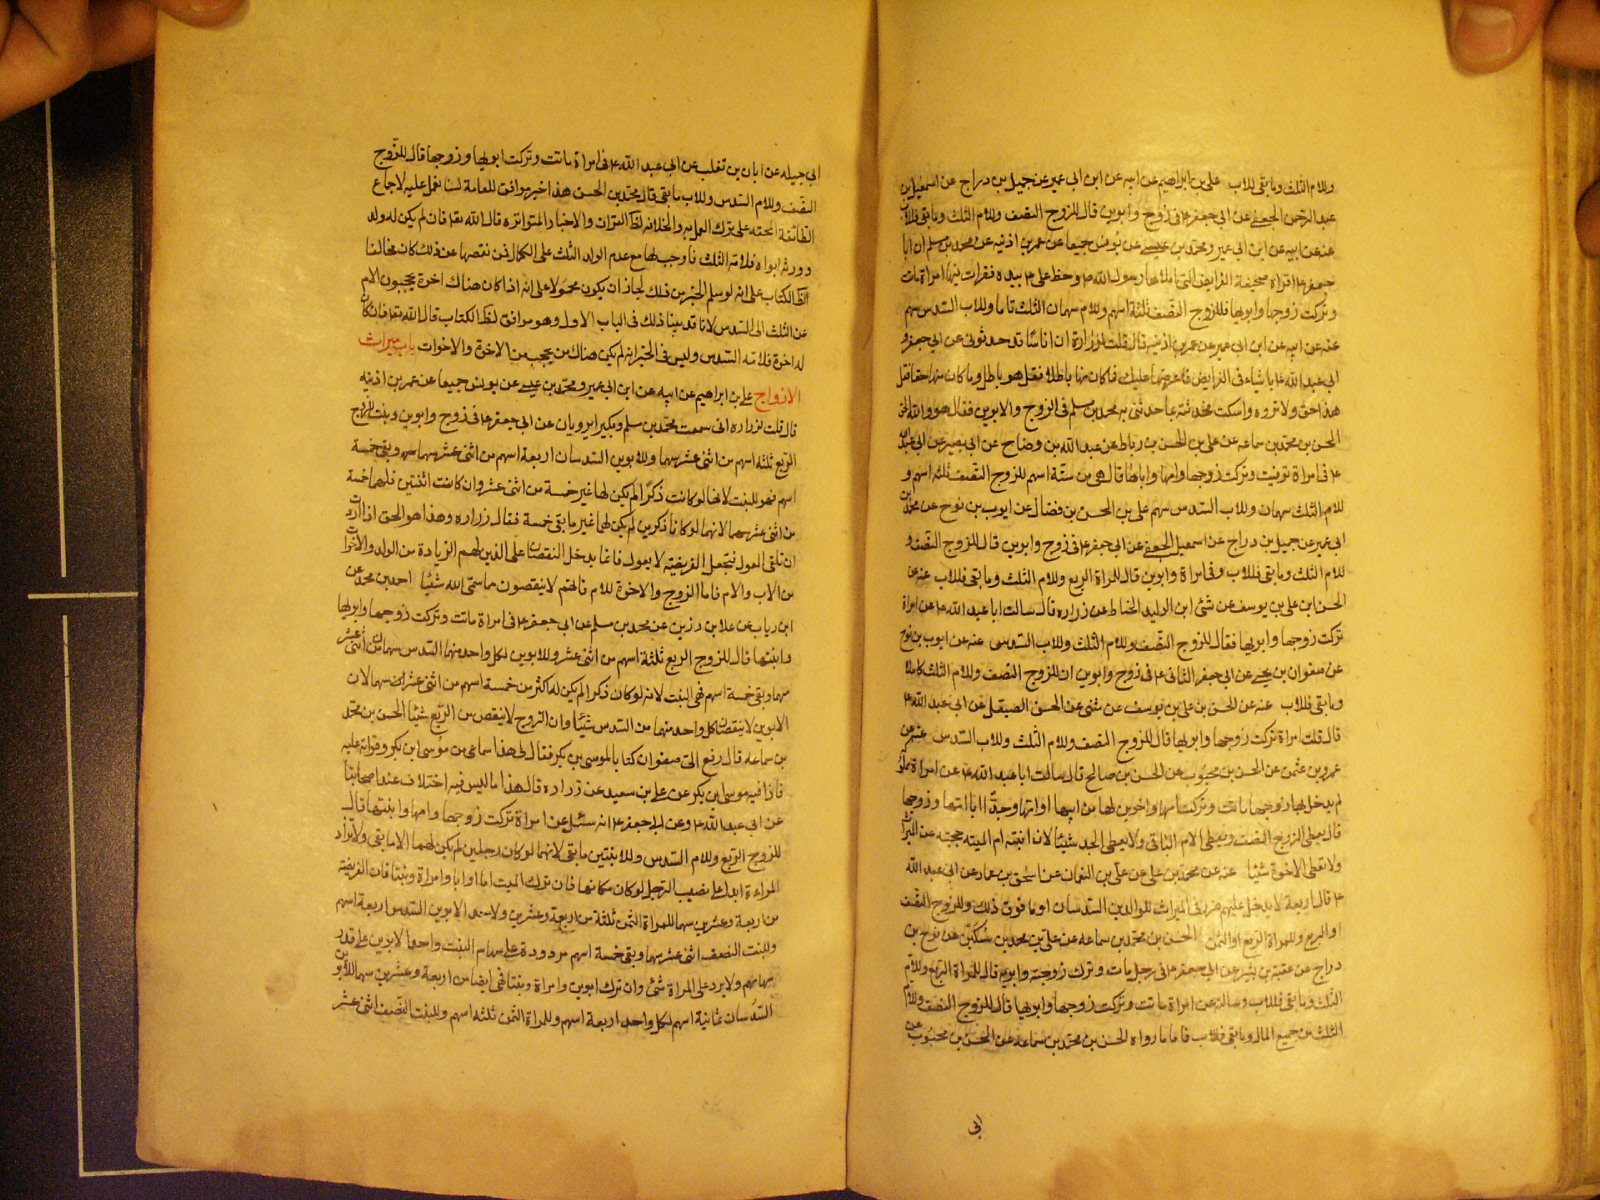 وللام الثلث وما بقى للاب علي بن ابراهيم عن ابيه عن ابن ابى عمير عن جميل بن دراج عن اسمعيل بن
عبد الرحمن الجعفي عن ابى جعفر ع فى زوج وابوين قال للزوج النصف وللام الثلث وما بقى فللاب
عنه عن ابيه عن ابن ابى عمير ومحمد بن عيسى عن يونس جميعا عن عمر بن اذينه عن محمد بن مسلم ان ابا
جعفر ع اقراه صحيفة الفرايض التى املاها رسول الله ص وخط على ع بيده فقرات فيها امراة ماتت
وتركت زوجها وابويها فللزوج النصف ثلثة اسهم وللام سهمان الثلث تاما وللاب السدس سهم
عنه عن ابيه عن ابن ابى عمير عن عمر بن اذينه قال قلت لزرارة ان اناسا قد حدثونى عن ابى جعفر و
ابى عبد الله ع باشياء فى الفرايض فاعرضها عليك فما كان منها باطلا فقل هو باطل وما كان منها حقا فقل
هذا حق ولا تروه واسكت فحدثته بما حدثنى به محمد بن مسلم فى الزوج والابوين فقال هو والله الحق
الحسن بن محمد بن سماعه عن علي بن الحسن بن رباط عن عبد الله بن وضاح عن ابى بصير عن ابى عبد الله
ع فى امراة توفيت وتركت زوجها وامها واباها قال هى من ستة اسهم للزوج النصف ثلثه اسهم و
للام الثلث سهمان وللاب السدس سهم على بن الحسن بن فضال عن ايوب بن نوح عن محمد بن
ابى عمير عن جميل بن دراج عن اسمعيل الجعفي عن ابى جعفر ع فى زوج وابوين قال للزوج النصف و
للام الثلث وما بقى فللاب وفى امراة وابوين قال للمراة الربع وللام الثلث وما بقى فللاب عنه عن
الحسن ابن علي بن يوسف عن مثنى ابن الوليد الحناط عن زراره قال سالت ابا عبد الله ع عن امراة
تركت زوجها وابويها فقال للزوج النصف وللام الثلث وللاب السدس عنه عن ايوب بن نوح
عن صفوان بن يحيى عن ابى جعفر الثانى ع فى زوج وابوين ان للزوج النصف وللام الثلث كاملا
وما بقى فللاب عنه عن الحسن بن علي بن يوسف عن مثنى عن الحسن الصيقل عن ابى عبد الله ع
قال قلت امراة تركت زوجها وابويها قال للزوج النصف وللام الثلث وللاب السدس عنه عن
عمرو بن عثمن عن الحسن بن محبوب عن الحسن بن صالح قال سالت ابا عبد الله ع عن امراة مملكة
لم يدخل بها زوجها ماتت وتركت امها واخوين لها من ابيها وامها وجدا ابا امها وزوجها
قال يعطى الزوج النصف ويعطى الام الباقى ولا يعطى الجد شيئا لان ابنته ام الميته حجبته عن الميراث
ولا تعطى الاخوة شيئا عنه عن محمد بن على عن علي بن النعمان عن اسحق بن عمار عن ابى عبد الله
ع قال اربعة لا يدخل عليهم ضرر فى الميراث للوالدين السدسان او ما فوق ذلك وللزوج النصف
او الربع وللمراة الربع او الثمن الحسن بن محمد بن سماعه عن علي بن محمد بن سكين عن نوح بن
دراج عن عقبه بن بشير عن ابى جعفر ع فى رجل مات وترك زوجته وابويه قال للمراة الربع وللام
الثلث وما بقى فللاب وسالته عن امراة ماتت وتركت زوجها وابويها قال للزوج النصف وللام
الثلث من جميع المال وما بقى فللاب فاما ما رواه الحسن بن محمد بن سماعه عن الحسن بن محبوب عن
ابى
ابى جميله عن ابان بن تغلب عن ابى عبد الله ع فى امراة ماتت وتركت ابويها وزوجها قال للزوج
النصف وللام السدس وللاب ما بقى قال محمد بن الحسن هذا خبر موافق للعامة لسنا نعمل عليه لاجماع
الطائفة المحقه على ترك العمل به والخلافه لظاهر القران والاخبار المتواتره قال الله تعا فان لم يكن له ولد
وورثه ابواه فلامه الثلث فاوجب لها مع عدم الولد الثلث على الكمال فمن نقصها عن ذلك كان مخالفا
لظاهر الكتاب على انه لو سلم الخبر من ذلك لجاز ان يكون محمولا على انه اذا كان هناك اخوة يحجبون الام
عن الثلث الى السدس لانا قد بينا ذلك فى الباب الاول وهو موافق لظاهر الكتاب قال الله تعا فان كان
له اخوة فلامه السدس وليس فى الخبر انه لم يكن هناك من يحجب من الاخوة والاخوات باب ميراث
الازواج علي بن ابراهيم عن ابيه عن ابن ابى عمير ومحمد بن عيسى عن يونس جميعا عن عمر بن اذينه
قال قلت لزراره انى سمعت محمد بن مسلم وبكيرا يرويان عن ابى جعفر ع فى زوج وابوين وبنت للزوج
الربع ثلثه اسهم من اثنى عشر سهما وللابوين السدسان اربعة اسهم من اثنى عشر سهما وبقى خمسة
اسهم فهو للبنت لانها لو كانت ذكرا لم يكن لها غير خمسة من اثنى عشر وان كانت اثنتين فلهما خمسة
من اثنى عشر سهما لانهما لو كانا ذكرين لم يكن لهما غير ما بقى خمسة فقال زراره وهذا هو الحق اذا اردت
ان تلقى العول فتجعل الفريضه لا تعول فانما يدخل النقصان على الذين لهم الزيادة من الولد والاخوات
من الاب والام فاما الزوج والاخوة للام فانهم لا ينقصون مما سمى الله شيئا احمد بن محمد عن
ابن رياب عن علا بن رزين عن محمد بن مسلم عن ابى جعفر ع فى امراة ماتت وتركت زوجها وابويها
وابنتها قال للزوج الربع ثلثة اسهم من اثنى عشر وللابوين لكل واحد منهما السدس سهمان من اثنى عشر
سهما وبقى خمسة اسهم فهى للبنت لانه لو كان ذكرا لم يكن له اكثر من خمسة اسهم من اثنى عشر سهما لان
الابوين لا ينقصان كل واحد منهما من السدس شيئا وان الزوج لا ينقص من الربع شيئا الحسن بن محمد
بن سماعه قال رفع الى صفوان كتابا لموسى بن بكر فقال لى هذا سماعى من موسى ابن بكر وقراته عليه
فاذا فيه موسى ابن بكر عن علي بن سعيد عن زراره قال هذا ما ليس فيه اختلاف عند اصحابنا
عن ابى عبد الله ع وعن ابى جعفر ع انه سئل عن امراة تركت زوجها وامها وابنتيها قال
للزوج الربع وللام السدس وللابنتين ما بقى لانهما لو كانا رجلين لم يكن لهما الا ما بقى ولا تزاد
المراءة ابدا على نصيب الرجل لو كان مكانها فان ترك الميت اما او ابا وامراة وبنتا فان الفريضة
من اربعة وعشرين سهما للمراة الثمن ثلثة من اربعة وعشرين ولاحد الابوين السدس اربعة اسهم
وللبنت النصف اثنى عشر سهما وبقى خمسة اسهم مردودة على سهام البنت واحد الابوين على قدر
سهامهم ولا يرد على المراة شئ وان ترك ابوين وامراة وبنتا فهى ايضا من اربعة وعشرين سهما للابوين
السدسان ثمانية اسهم لكل واحد اربعة اسهم وللمراة الثمن ثلثه اسهم وللبنت النصف اثنى عشر